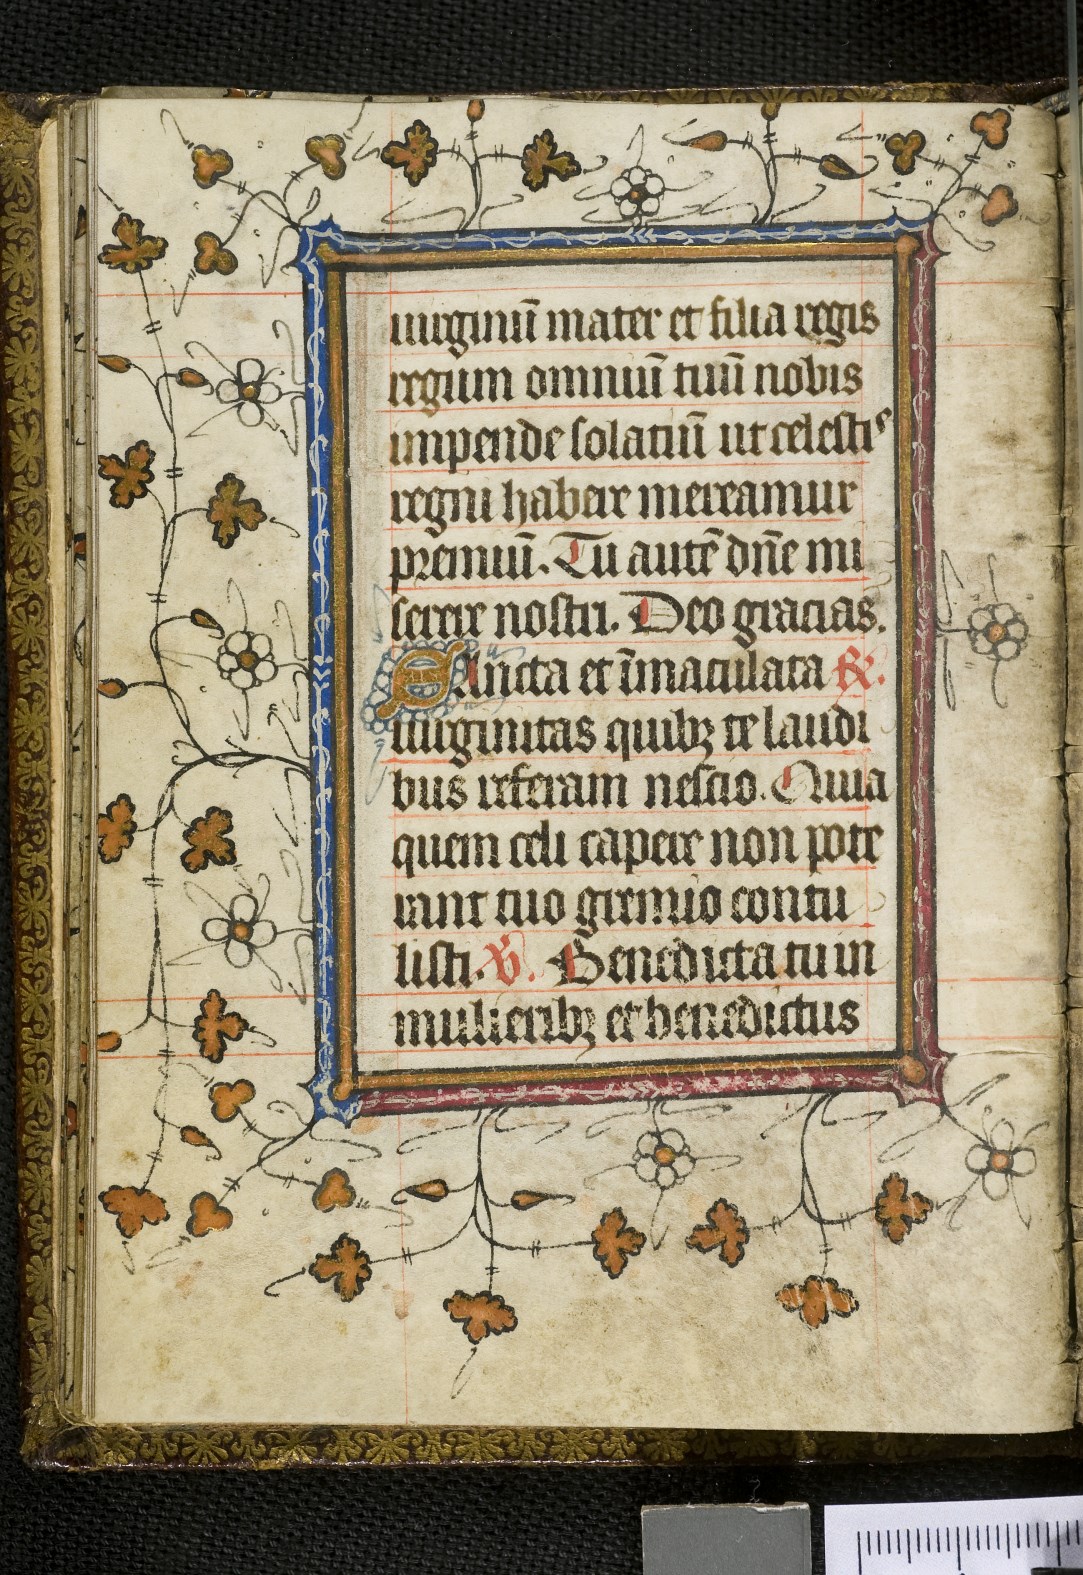 uirginū mater et filia regis
regum omniū tuū nobis
impende solatiū ut celestis
regni habere mereamur
premiū. Tu autē dñe mi
serere nostri. Deo gracias.
Sancta et īmaculata ℟.
uirginitas quibꝫ te laudi
bus referam nescio. Quia
quem celi capere non pote
rant tuo gremio contu
listi. ℣. Benedicta tu in
mulieribꝫ et benedictus